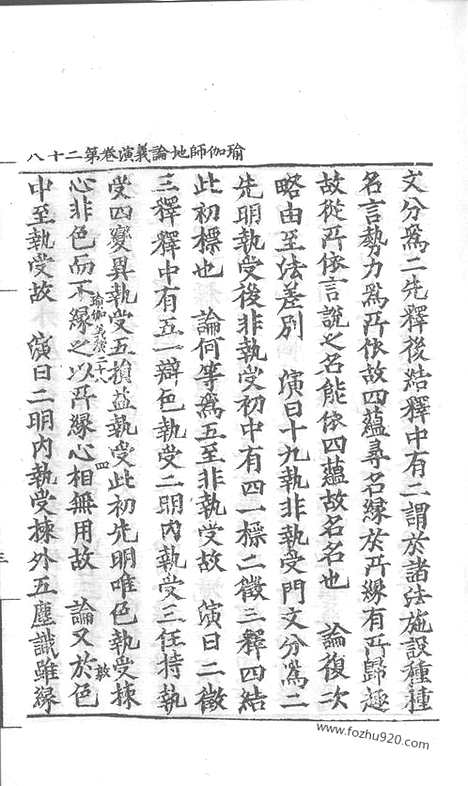 瑜伽師地論義演卷第二十八
文分爲二先釋後結釋中有二謂於諸法施設種種
名言勢力爲所依故四蘊尋名緣於所緣有所歸趣
故從所依言說之名能依四蘊故名名也　論復次
略由至法差別　演曰十九執非執受門文分爲二
先明執受後非執受初中有四一標二徵三釋四結
此初標也　論何等爲五至非執受故　演曰二徵
三釋釋中有五一辯色執受二明內執受三任持執
受四變異執受五損益執受此初先明唯色執受揀
瑜伽義演二十八　四
心非色而不緣之以所緣心相無用故　論又於色
中至執受故　演曰二明內執受揀外五塵識雖緣
www.fozhu920.com